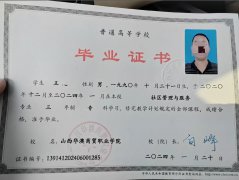 普通高等学校
毕业证书
学生 王 性别 男，一九九〇年十二月二十一日生，于二〇二〇
年十二月至二〇二四年一月在本校 社区管理与服务
专业 三 年制 专 科学习，修完教学计划规定的全部课程，成绩合
格，准予毕业。
校 名：山西华澳商贸职业学院 校（院）长：
证书编号：139141202406001285 二〇二四年 一月二十日